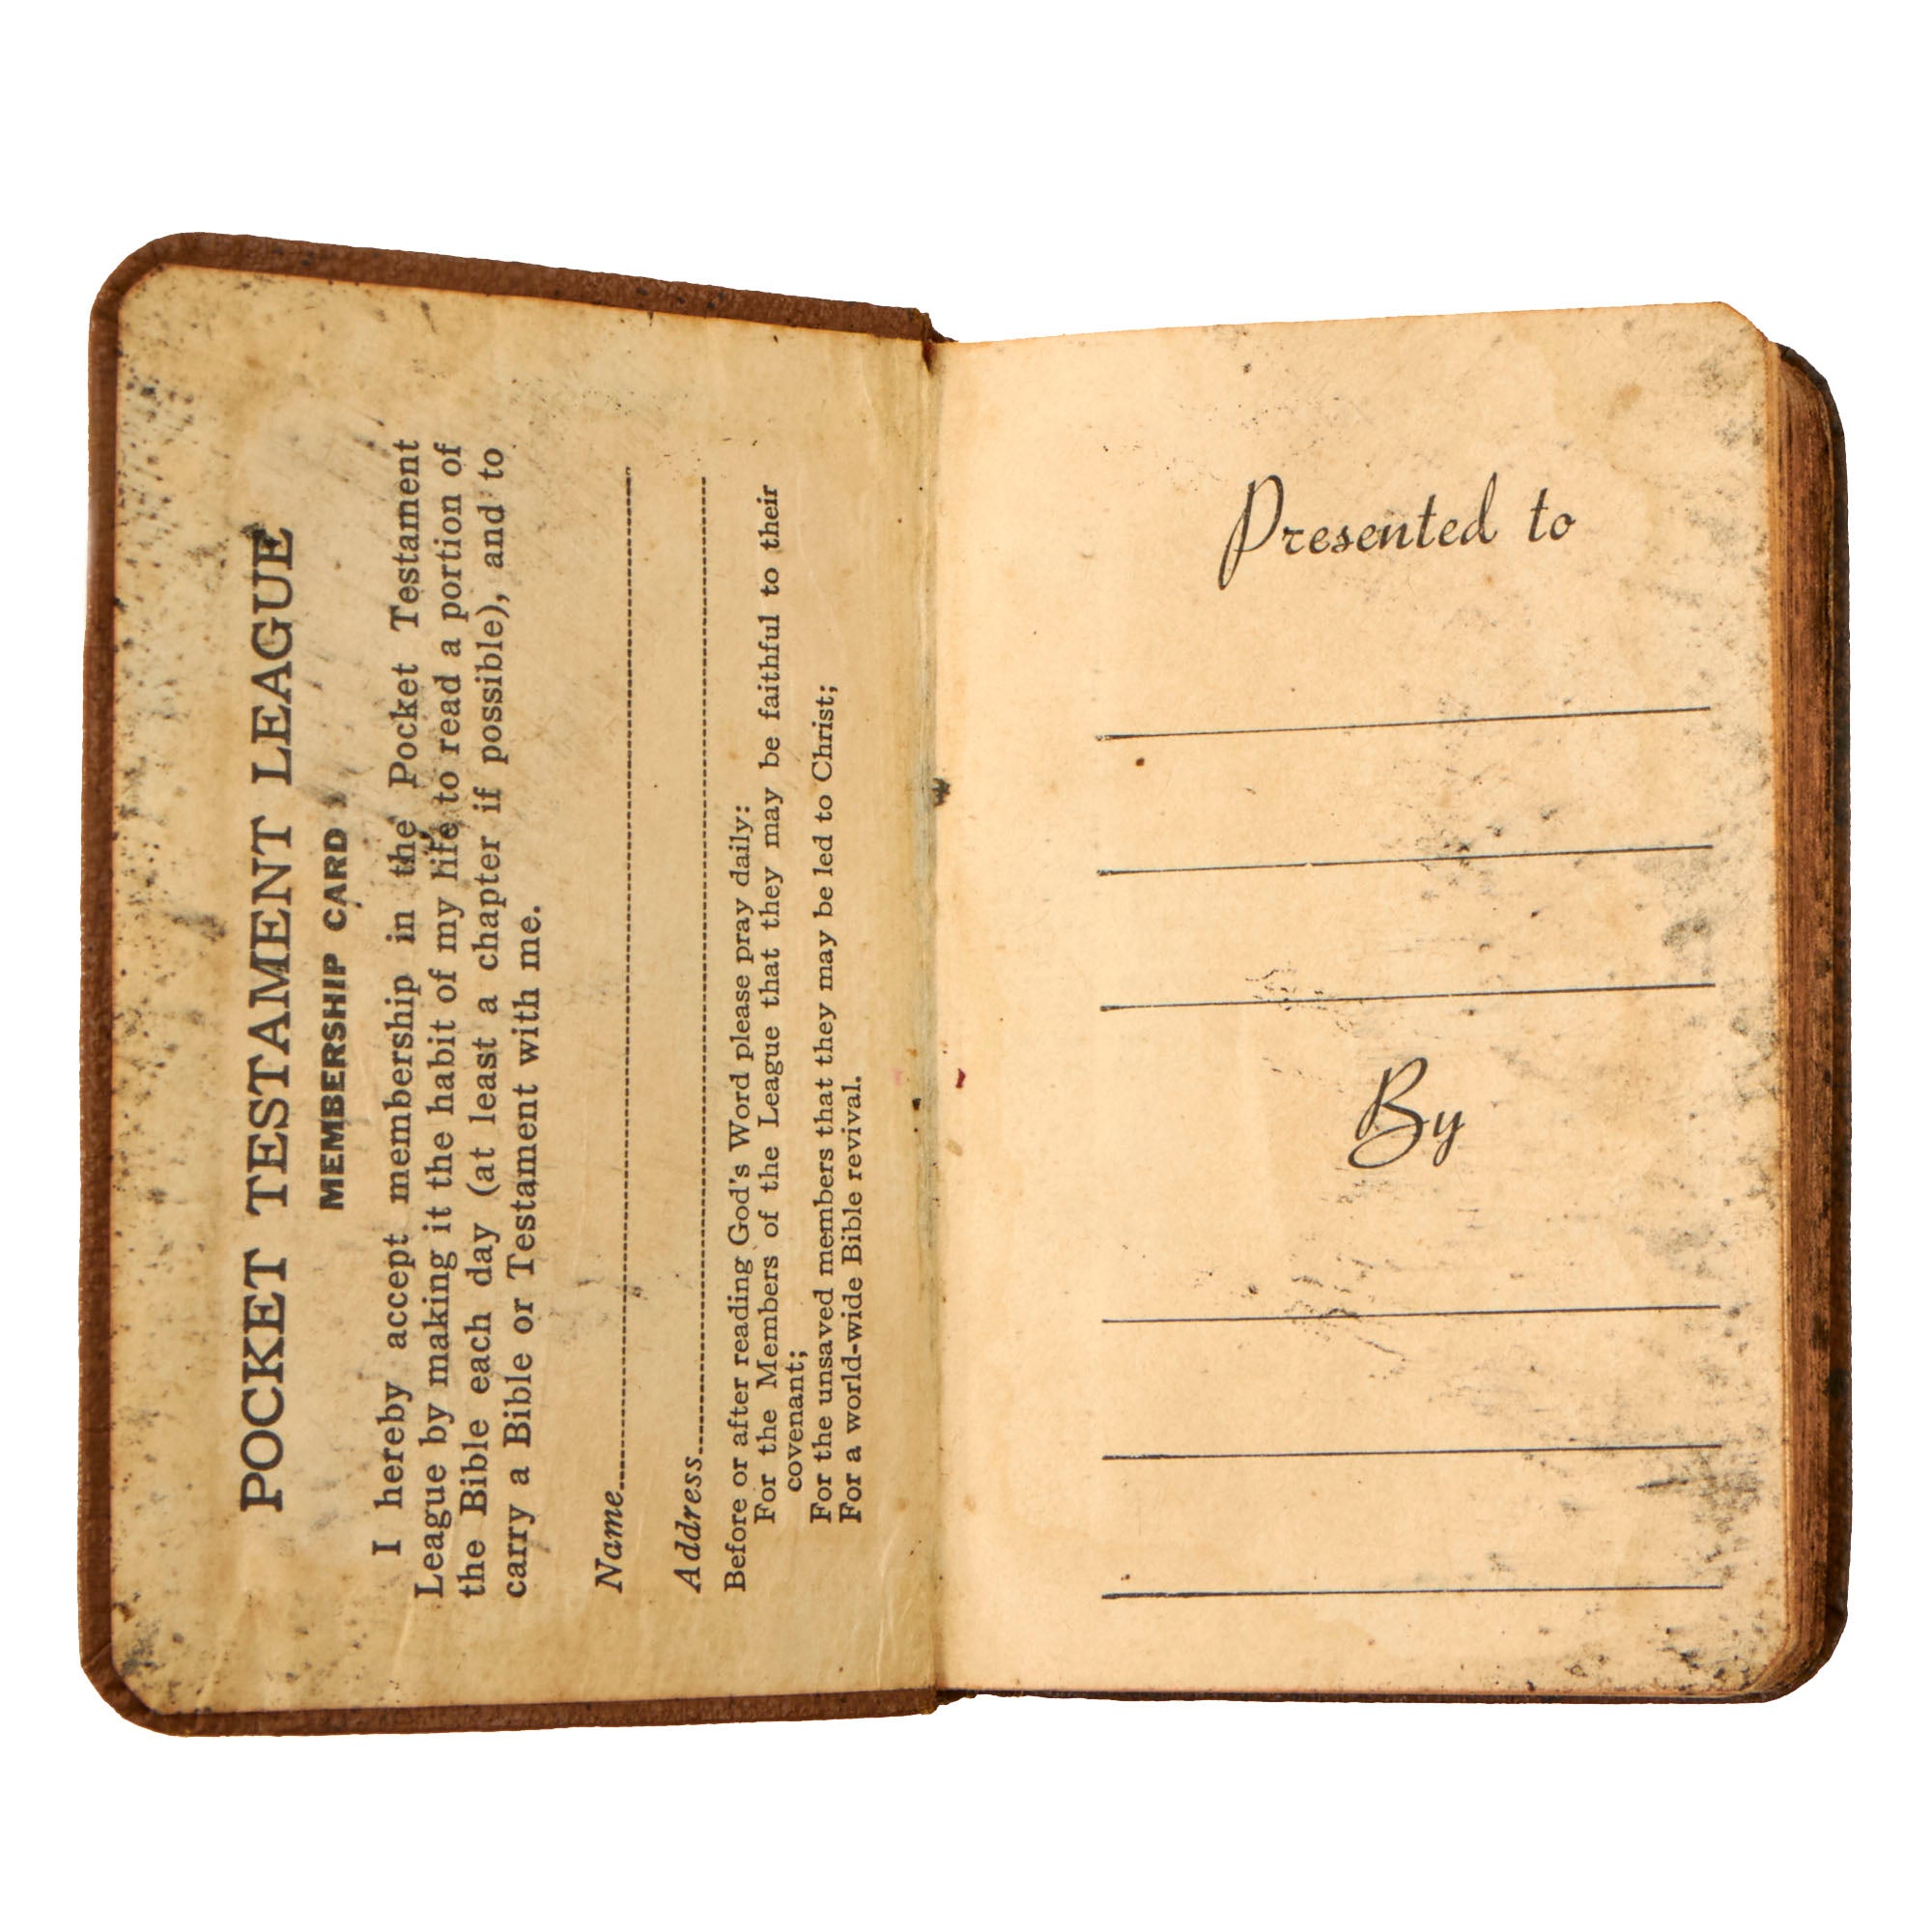 POCKET TESTAMENT LEAGUE
MEMBERSHIP CARD
I hereby accept membership in the Pocket Testament
League by making it the habit of my life to read a portion of
the Bible each day (at least a chapter if possible), and to
carry a Bible or Testament with me.
Name
Address
Before or after reading God's Word please pray daily:
For the Members of the League that they may be faithful to their
covenant;
For the unsaved members that they may be led to Christ;
For a world-wide Bible revival.
Presented to
By